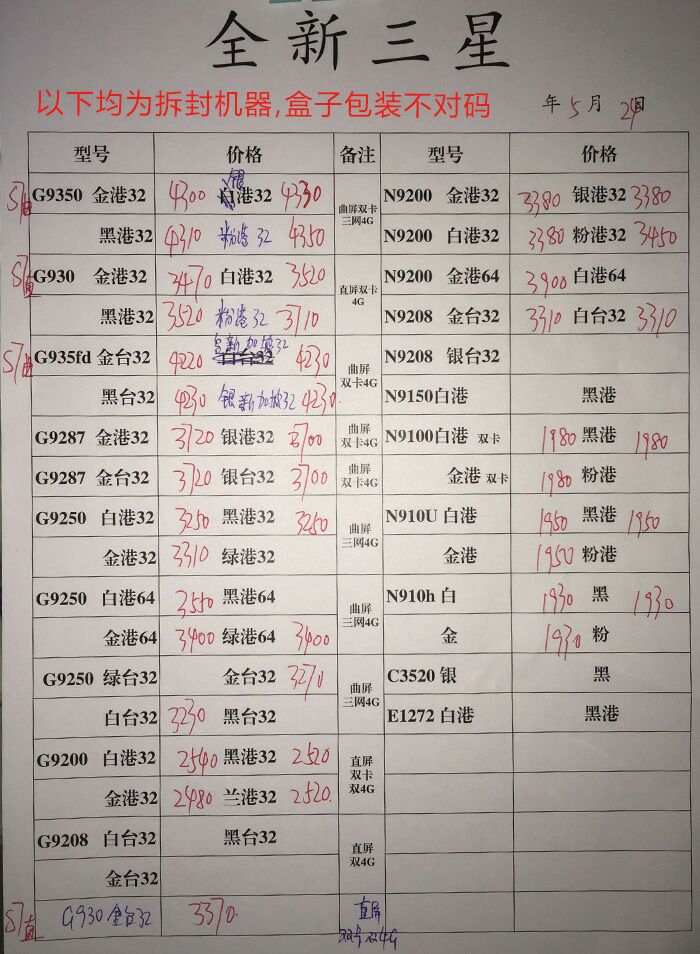 全新三星
以下均为拆封机器,盒子包装不对码
年 5 月 24日
型号 价格 备注 型号 价格
S7曲 G9350 金港32 4300 银港32 4330 曲屏双卡三网4G N9200 金港32 3380 银港32 3380
黑港32 4310 粉港32 4350 N9200 白港32 3380 粉港32 3450
S7直 G930 金港32 3470 白港32 3520 直屏双卡4G N9200 金港64 3900 白港64
黑港32 3520 粉港32 3710 N9208 金台32 3310 白台32 3310
S7曲 G935fd 金台32 4220 白台32 新加坡32 4230 曲屏双卡4G N9208 银台32
黑台32 4230 银新加坡32 4230 N9150白港 黑港
G9287 金港32 3720 银港32 3700 曲屏双卡4G N9100白港 双卡 1980 黑港 1980
G9287 金台32 3720 银台32 3700 曲屏双卡4G 金港 双卡 1980 粉港
G9250 白港32 3250 黑港32 3250 曲屏三网4G N910U 白港 1950 黑港 1950
金港32 3310 绿港32 金港 1950 粉港
G9250 白港64 3550 黑港64 曲屏三网4G N910h 白 1930 黑 1930
金港64 3400 绿港64 3400 金 1930 粉
G9250 绿台32 金台32 3270 曲屏三网4G C3520 银 黑
白台32 3230 黑台32 E1272 白港 黑港
G9200 白港32 2540 黑港32 2520 直屏双卡双4G
金港32 2480 兰港32 2520
G9208 白台32 黑台32 直屏双4G
金台32
S7直 G930 金台32 3370 直屏 双4G